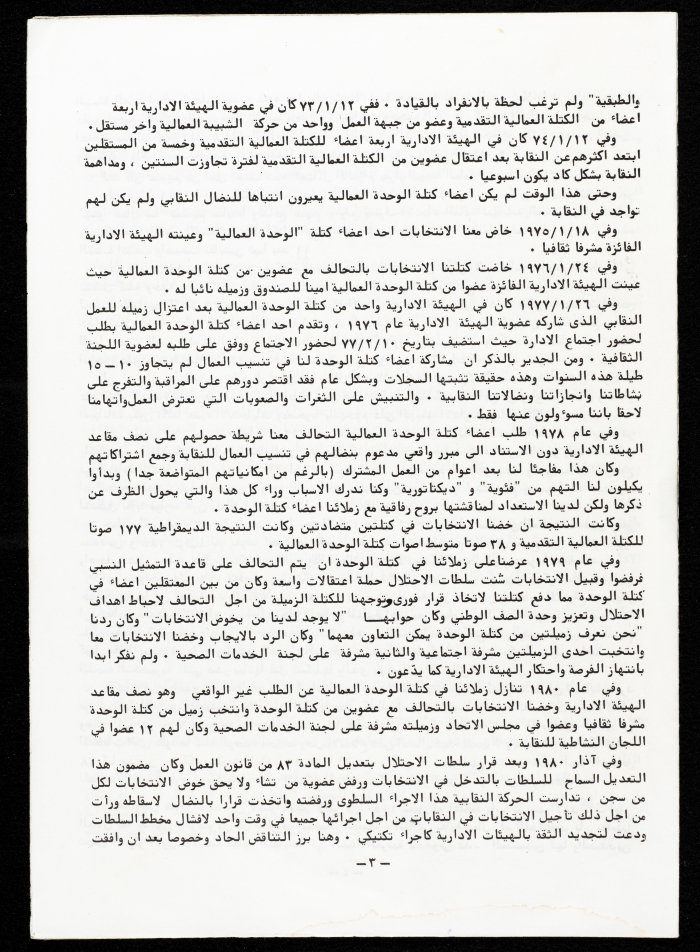 والطبقية" ولم ترغب لحظة بالانفراد بالقيادة . ففي ٧٣/١/١٢ كان في عضوية الهيئة الادارية اربعة
اعضاء من الكتلة العمالية التقدمية وعضو من جبهة العمل وواحد من حركة الشبيبة العمالية واخر مستقل .
وفي ٧٤/١/١٢ كان في الهيئة الادارية اربعة اعضاء للكتلة العمالية التقدمية وخمسة من المستقلين
ابتعد اكثرهم عن النقابة بعد اعتقال عضوين من الكتلة العمالية التقدمية لفترة تجاوزت السنتين ، ومداهمة
النقابة بشكل كاد يكون اسبوعيا .
وحتى هذا الوقت لم يكن اعضاء كتلة الوحدة العمالية يعيرون انتباها للنضال النقابي ولم يكن لهم
تواجد في النقابة .
وفي ١٩٧٥/١/١٨ خاض معنا الانتخابات احد اعضاء كتلة "الوحدة العمالية" وعينته الهيئة الادارية
الفائزة مشرفا ثقافيا .
وفي ١٩٧٦/١/٢٤ خاضت كتلتنا الانتخابات بالتحالف مع عضوين من كتلة الوحدة العمالية حيث
عينت الهيئة الادارية الفائزة عضوا من كتلة الوحدة العمالية امينا للصندوق وزميله نائبا له .
وفي ١٩٧٧/١/٢٦ كان في الهيئة الادارية واحد من كتلة الوحدة العمالية بعد اعتزال زميله للعمل
النقابي الذى شاركه عضوية الهيئة الادارية عام ١٩٧٦ ، وتقدم احد اعضاء كتلة الوحدة العمالية بطلب
لحضور اجتماع الادارة حيث استضيف بتاريخ ٧٧/٢/١٠ لحضور الاجتماع ووفق على طلبه لعضوية اللجنة
الثقافية . ومن الجدير بالذكر ان مشاركة اعضاء كتلة الوحدة لنا في تنسيب العمال لم يتجاوز ١٠ – ١٥
طيلة هذه السنوات وهذه حقيقة تثبتها السجلات وبشكل عام فقد اقتصر دورهم على المراقبة والتفرج على
نشاطاتنا وانجازاتنا ونضالاتنا النقابية . والتنبيش على الثغرات والصعوبات التي تعترض العمل واتهامنا
لاحقا باننا مسوءولون عنها فقط .
وفي عام ١٩٧٨ طلب اعضاء كتلة الوحدة العمالية التحالف معنا شريطة حصولهم على نصف مقاعد
الهيئة الادارية دون الاستناد الى مبرر واقعي مدعوم بنضالهم في تنسيب العمال للنقابة وجمع اشتراكاتهم
وكان هذا مفاجئا لنا بعد اعوام من العمل المشترك (بالرغم من امكانياتهم المتواضعة جدا) وبدأوا
يكيلون لنا التهم من "فئوية" و "ديكتاتورية" وكنا ندرك الاسباب وراء كل هذا والتي يحول الظرف عن
ذكرها ولكن لدينا الاستعداد لمناقشتها بروح رفاقية مع زملائنا اعضاء كتلة الوحدة .
وكانت النتيجة ان خضنا الانتخابات في كتلتين متضادتين وكانت النتيجة الديمقراطية ١٧٧ صوتا
للكتلة العمالية التقدمية و ٣٨ صوتا متوسط اصوات كتلة الوحدة العمالية .
وفي عام ١٩٧٩ عرضنا على زملائنا في كتلة الوحدة ان يتم التحالف على قاعدة التمثيل النسبي
فرفضوا وقبيل الانتخابات شنت سلطات الاحتلال حملة اعتقالات واسعة وكان من بين المعتقلين اعضاء في
كتلة الوحدة مما دفع كتلتنا لاتخاذ قرار فورى وتوجهنا للكتلة الزميلة من اجل التحالف لاحباط اهداف
الاحتلال وتعزيز وحدة الصف الوطني وكان جوابهـــا "لا يوجد لدينا من يخوض الانتخابات" وكان ردنا
"نحن نعرف زميلتين من كتلة الوحدة يمكن التعاون معهما" وكان الرد بالايجاب وخضنا الانتخابات معا
وانتخبت احدى الزميلتين مشرفة اجتماعية والثانية مشرفة على لجنة الخدمات الصحية . ولم نفكر ابدا
بانتهاز الفرصة واحتكار الهيئة الادارية كما يدّعون .
وفي عام ١٩٨٠ تنازل زملائنا في كتلة الوحدة العمالية عن الطلب غير الواقعي وهو نصف مقاعد
الهيئة الادارية وخضنا الانتخابات بالتحالف مع عضوين من كتلة الوحدة وانتخب زميل من كتلة الوحدة
مشرفا ثقافيا وعضوا في مجلس الاتحاد وزميلته مشرفة على لجنة الخدمات الصحية وكان لهم ١٢ عضوا في
اللجان النشاطية للنقابة .
وفي آذار ١٩٨٠ وبعد قرار سلطات الاحتلال بتعديل المادة ٨٣ من قانون العمل وكان مضمون هذا
التعديل السماح للسلطات بالتدخل في الانتخابات ورفض عضوية من تشاء ولا يحق خوض الانتخابات لكل
من سجن ، تدارست الحركة النقابية هذا الاجراء السلطوى ورفضته واتخذت قرارا بالنضال لاسقاطه ورأت
من اجل ذلك تأجيل الانتخابات في النقابات من اجل اجرائها جميعا في وقت واحد لافشال مخطط السلطات
ودعت لتجديد الثقة بالهيئات الادارية كاجراء تكتيكي . وهنا برز التناقض الحاد وخصوصا بعد ان وافقت
– ٣ –